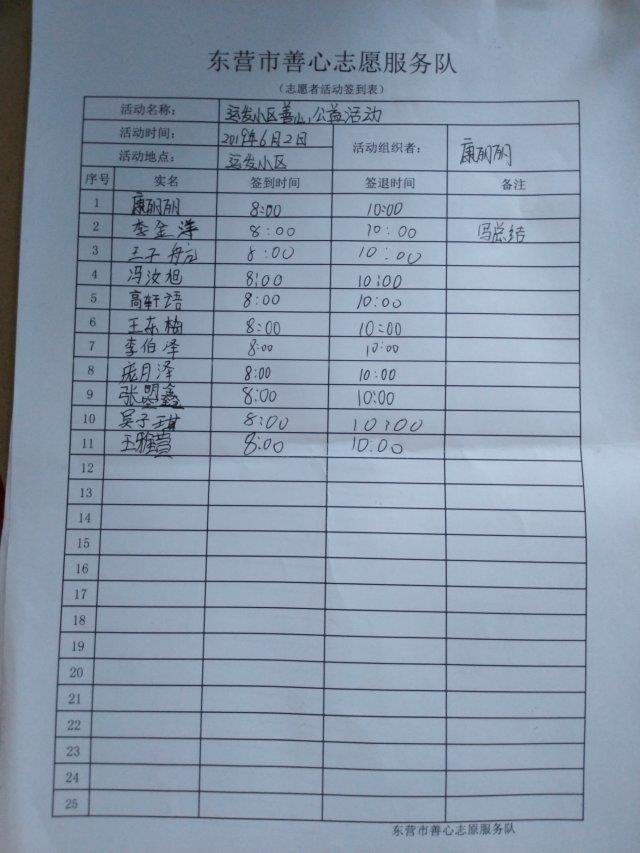 东营市善心志愿服务队
（志愿者活动签到表）
活动名称： 运发小区善心公益活动
活动时间： 2019年6月2日 活动组织者： 康丽丽
活动地点： 运发小区
序号 实名 签到时间 签退时间 备注
1 康丽丽 8:00 10:00
2 李金泽 8:00 10:00 写总结
3 王子 8:00 10:00
4 冯汝旭 8:00 10:00
5 高轩语 8:00 10:00
6 王东梅 8:00 10:00
7 李伯泽 8:00 10:00
8 庞月泽 8:00 10:00
9 张盟鑫 8:00 10:00
10 吴子琪 8:00 10:00
11 王雅萱 8:00 10:00
12
13
14
15
16
17
18
19
20
21
22
23
24
25
东营市善心志原服务队